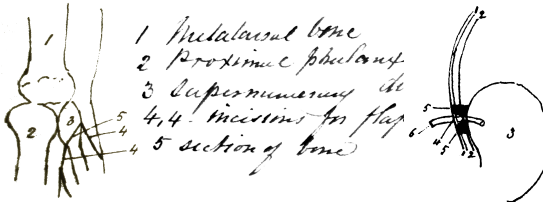 1 Metatarsal bone
2 Proximal phalanx
3 Supernumerary di
4,4. incisions for flap
5 section of bone
1
2
3
5
4
4
12
5
6
4
5
12
3